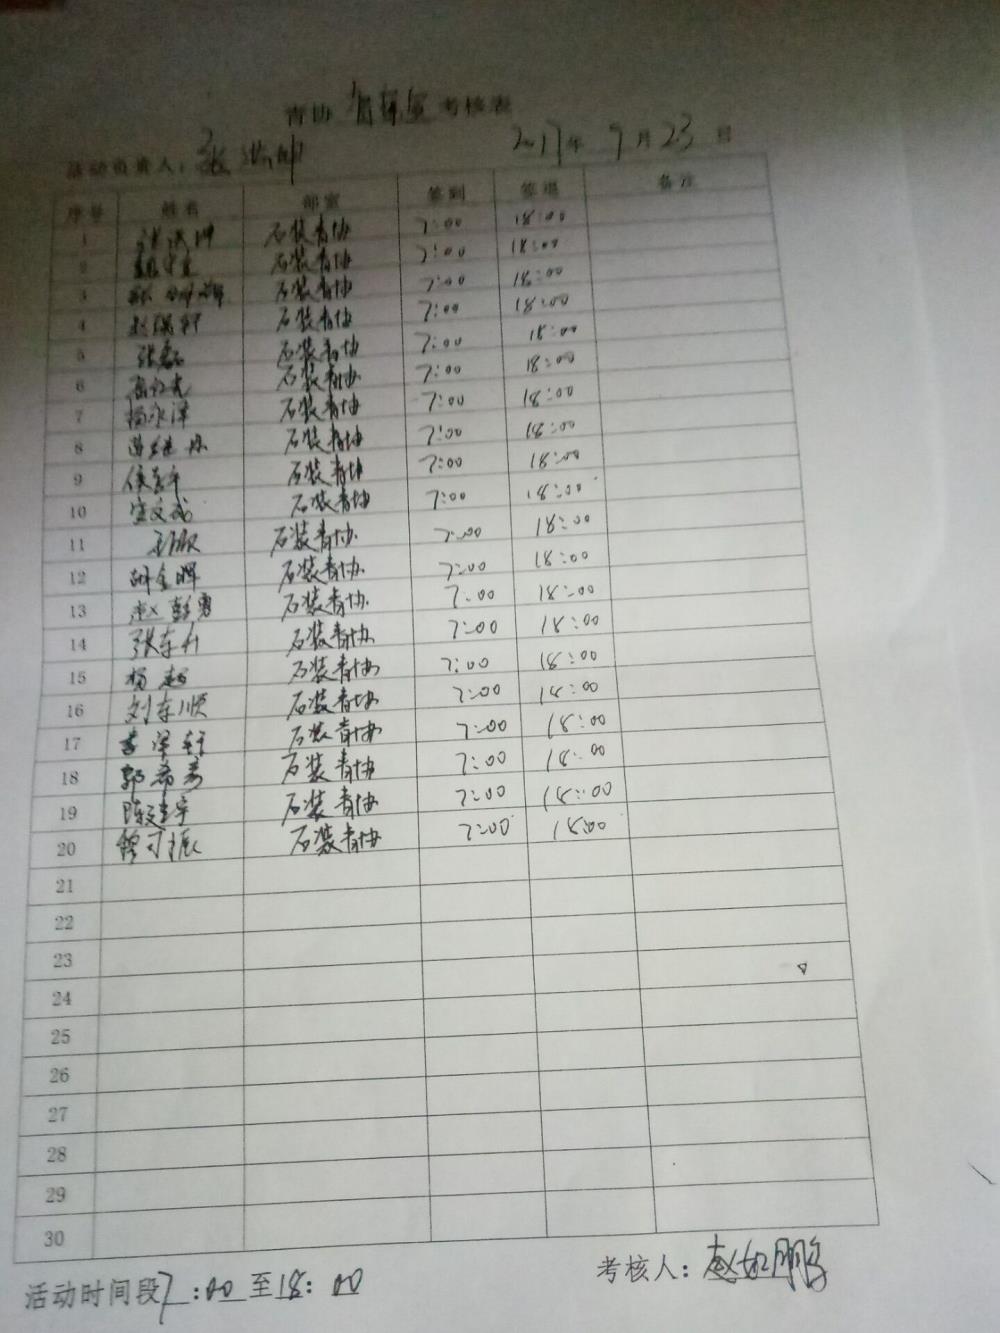 青协 考核表
活动负责人: 张洪帅 2017年 9月23日
序号 姓名 部室 签到 签退 备注
1 张洪帅 石装青协 7:00 18:00
2 石装青协 7:00 18:00
3 石装青协 7:00 18:00
4 赵瑞轩 石装青协 7:00 18:00
5 张磊 石装青协 7:00 18:00
6 石装青协 7:00 18:00
7 杨永泽 石装青协 7:00 18:00
8 石装青协 7:00 18:00
9 石装青协 7:00 18:00
10 石装青协 7:00 18:00
11 石装青协 7:00 18:00
12 胡金晖 石装青协 7:00 18:00
13 赵彭勇 石装青协 7:00 18:00
14 张东升 石装青协 7:00 18:00
15 杨超 石装青协 7:00 18:00
16 刘东顺 石装青协 7:00 18:00
17 石装青协 7:00 18:00
18 郭希 石装青协 7:00 18:00
19 陈建宇 石装青协 7:00 18:00
20 石装青协 7:00 18:00
21
22
23
24
25
26
27
28
29
30
活动时间段7:00至18:00 考核人: 赵如鹏